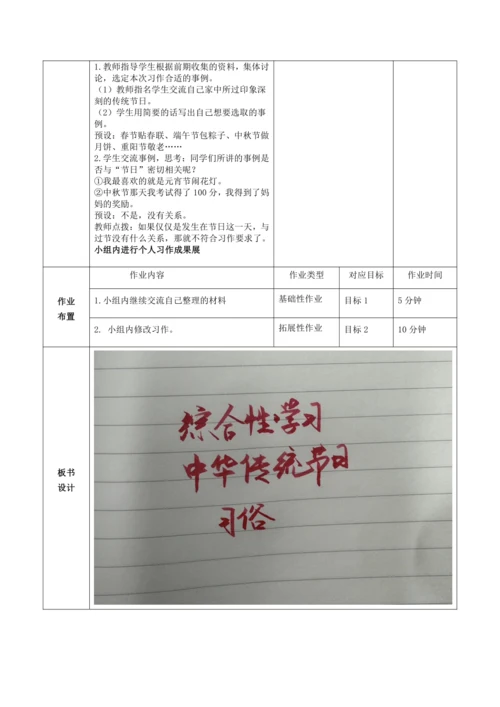 1.教师指导学生根据前期收集的资料，集体讨
论，选定本次习作合适的事例。
（1）教师指名学生交流自己家中所过印象深
刻的传统节日。
（2）学生用简要的话写出自己想要选取的事
例。
预设：春节贴春联、端午节包粽子、中秋节做
月饼、重阳节敬老……
2.学生交流事例，思考：同学们所讲的事例是
否与“节日”密切相关呢？
①我最喜欢的就是元宵节闹花灯。
②中秋节那天我考试得了100分，我得到了妈
妈的奖励。
预设：不是，没有关系。
教师点拨：如果仅仅是发生在节日这一天，与
过节没有什么关系，那就不符合习作要求了。
小组内进行个人习作成果展
作业
布置
作业内容 作业类型 对应目标 作业时间
1.小组内继续交流自己整理的材料 基础性作业 目标1 5分钟
2. 小组内修改习作。 拓展性作业 目标2 10分钟
板书
设计
综合性学习
中华传统节日
习俗